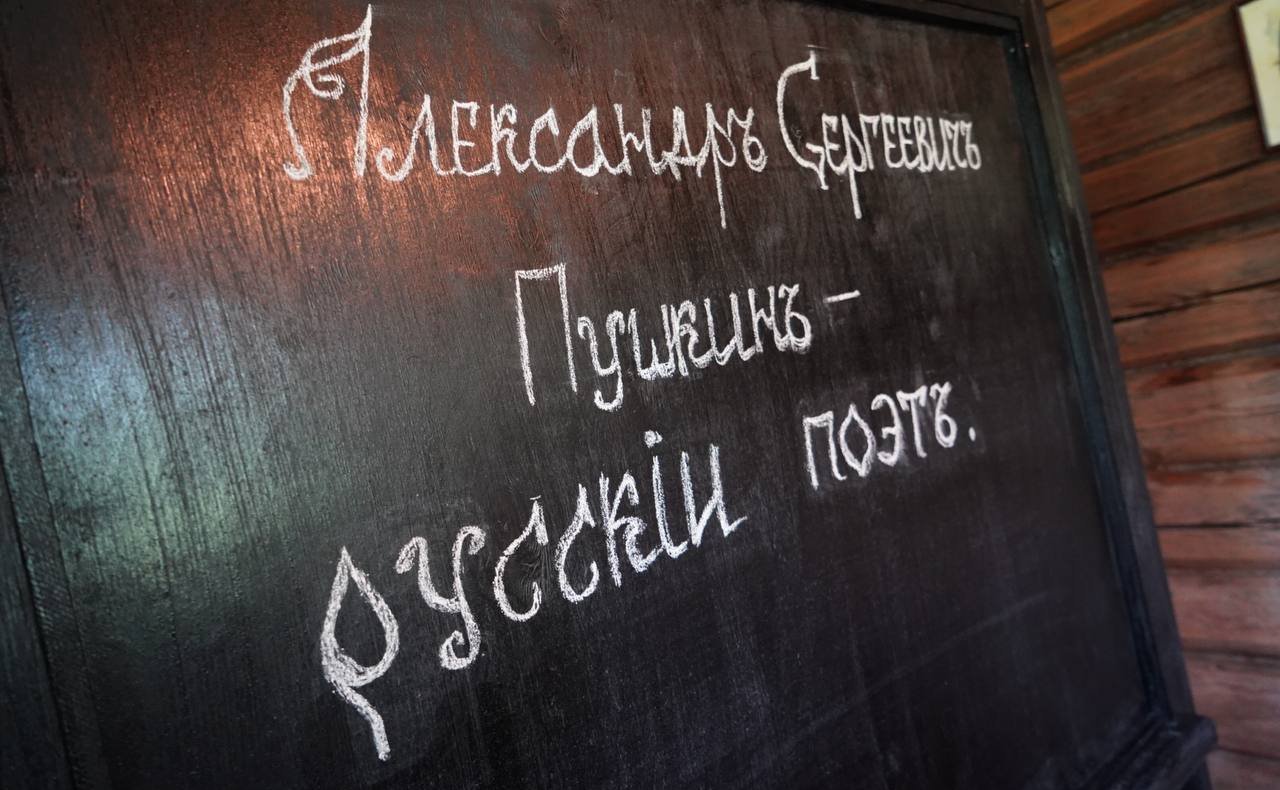 Александръ Сергеевичъ
Пушкинъ –
русскій поэтъ.